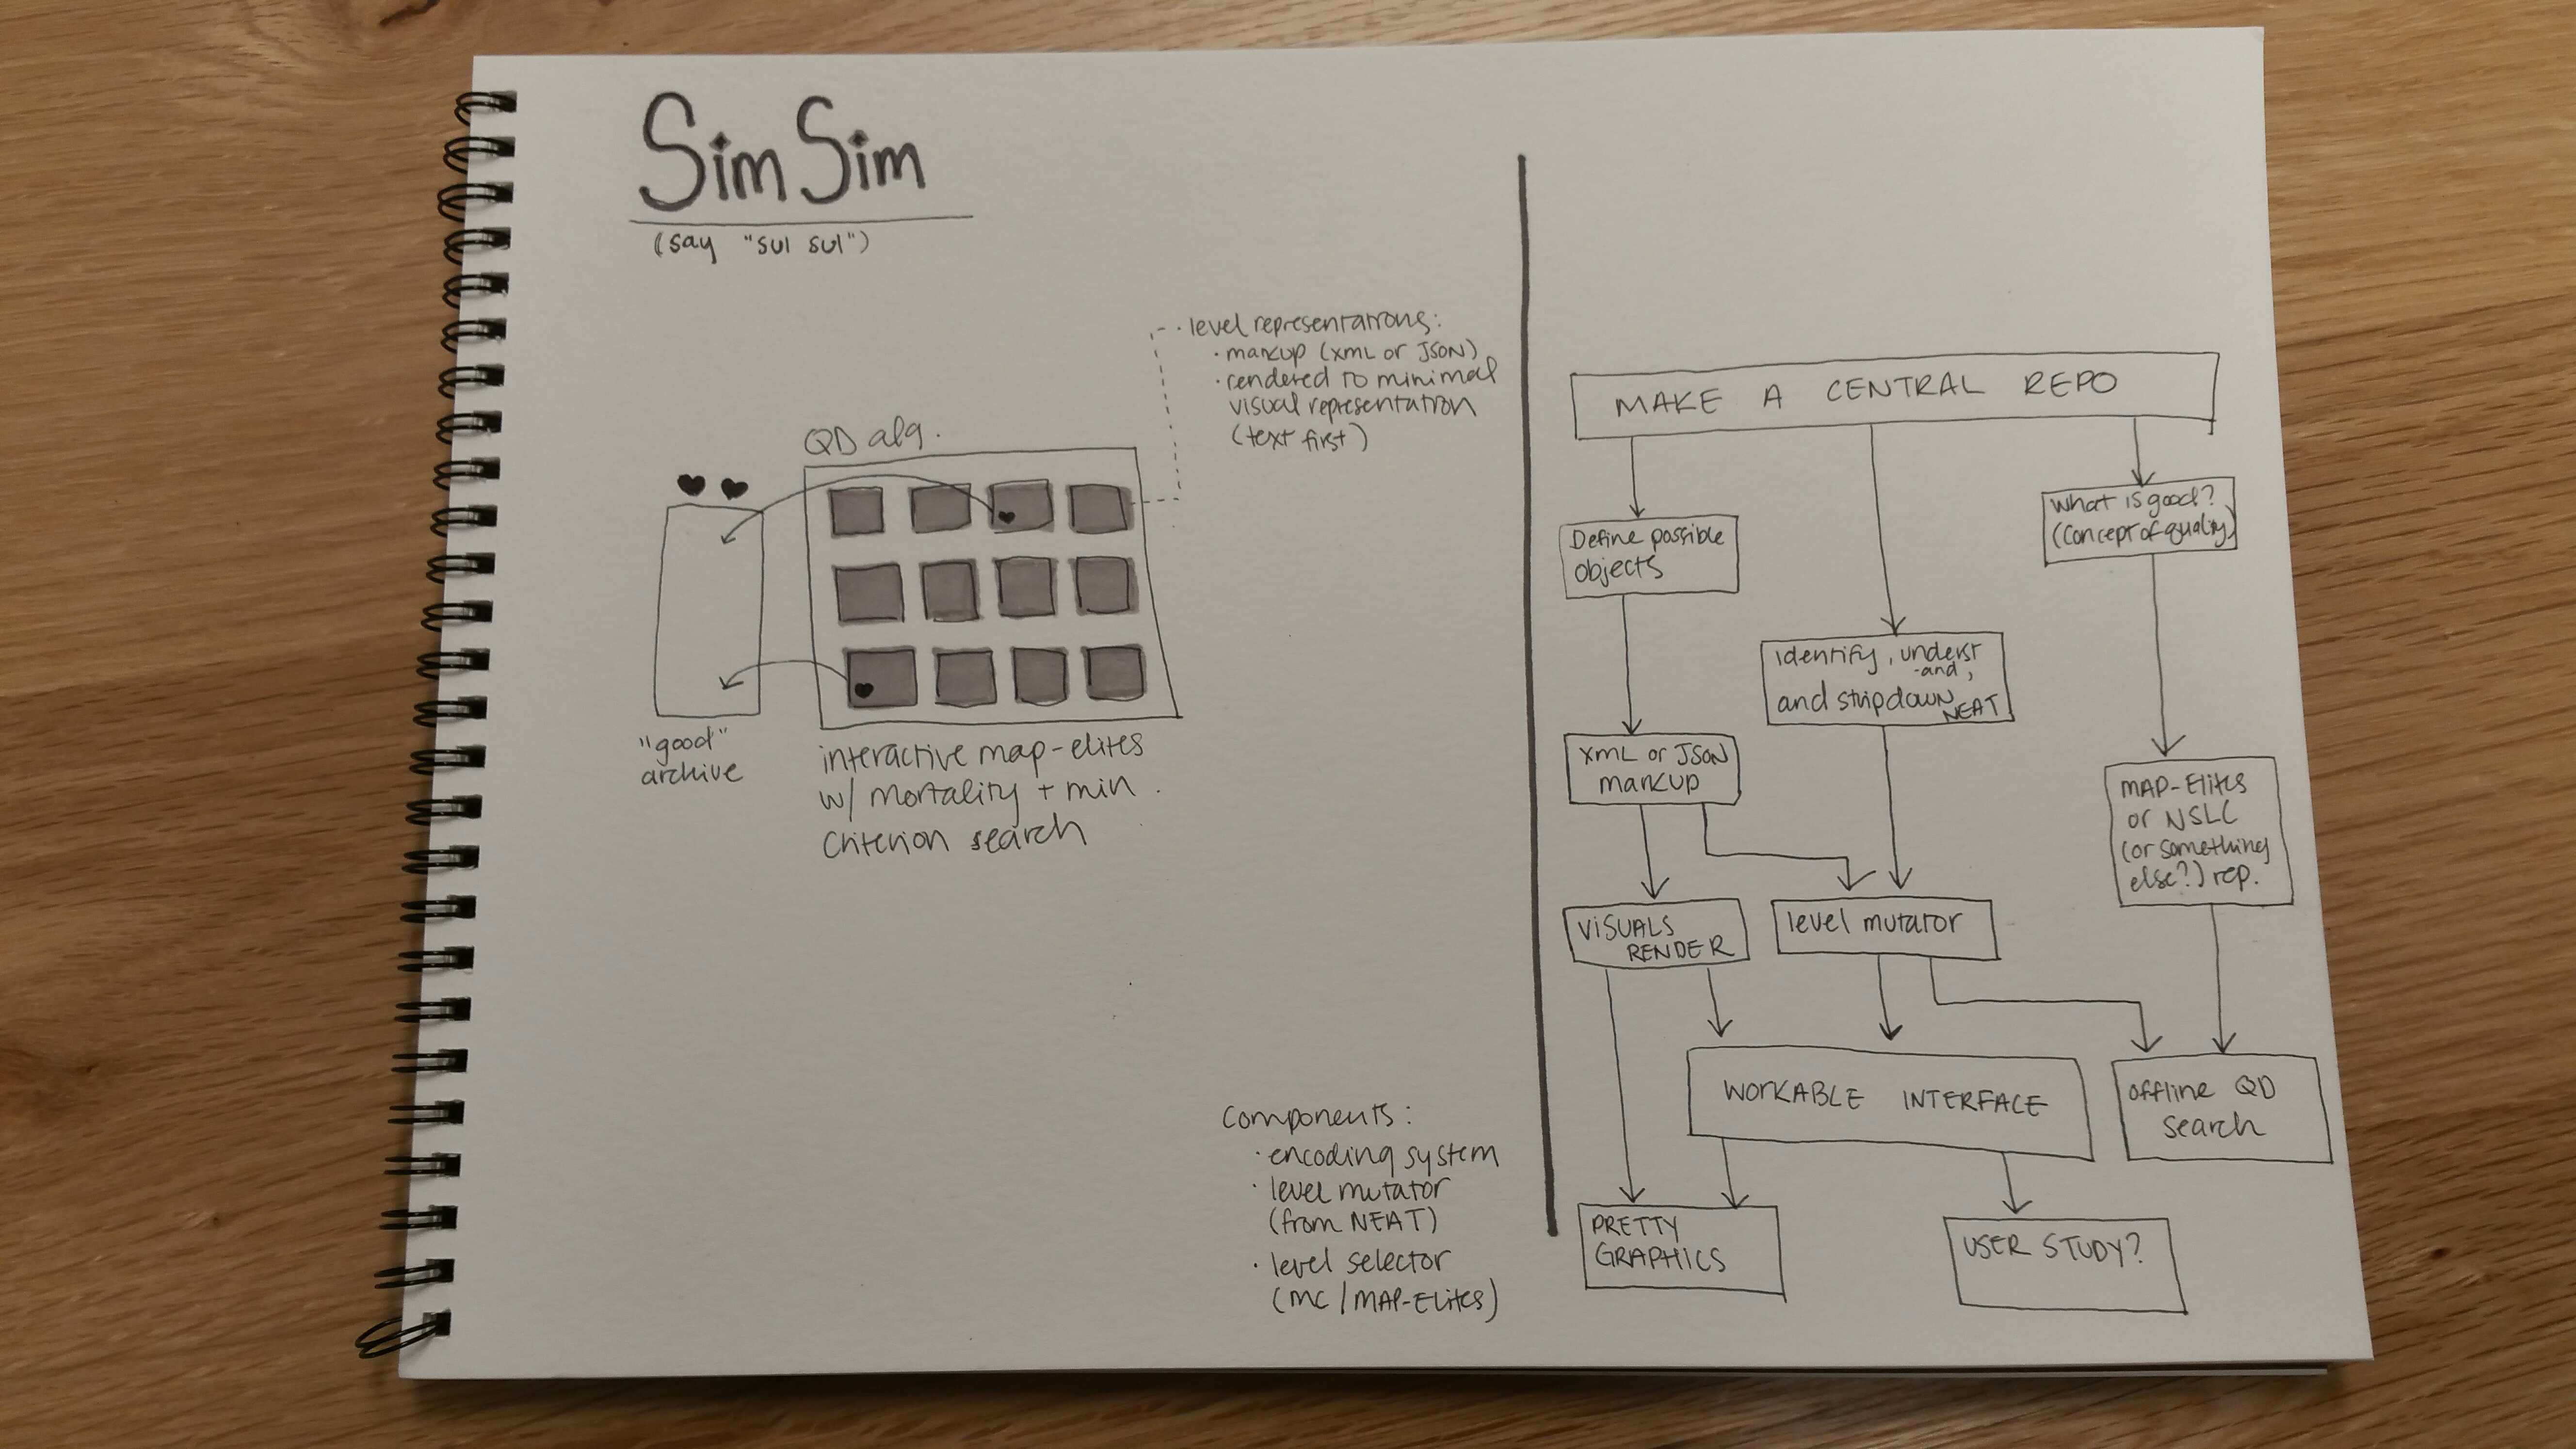 SimSim
(say "sul sul")
level representations:
· markup (xml or JSON)
· rendered to minimal
visual representation
(text first)
QD alg.
"good"
archive
interactive map-elites
w/ mortality + min.
criterion search
Components:
· encoding system
· level mutator
(from NEAT)
· level selector
(MC / MAP-ELites)
MAKE A CENTRAL REPO
What is good?
(Concept of quality)
Define possible
objects
identify, underst
-and,
and strip down
NEAT
XML or JSON
markup
MAP-Elites
or NSLC
(or something
else?) rep.
VISUALS
RENDER
level mutator
WORKABLE INTERFACE
offline QD
search
PRETTY
GRAPHICS
USER STUDY?